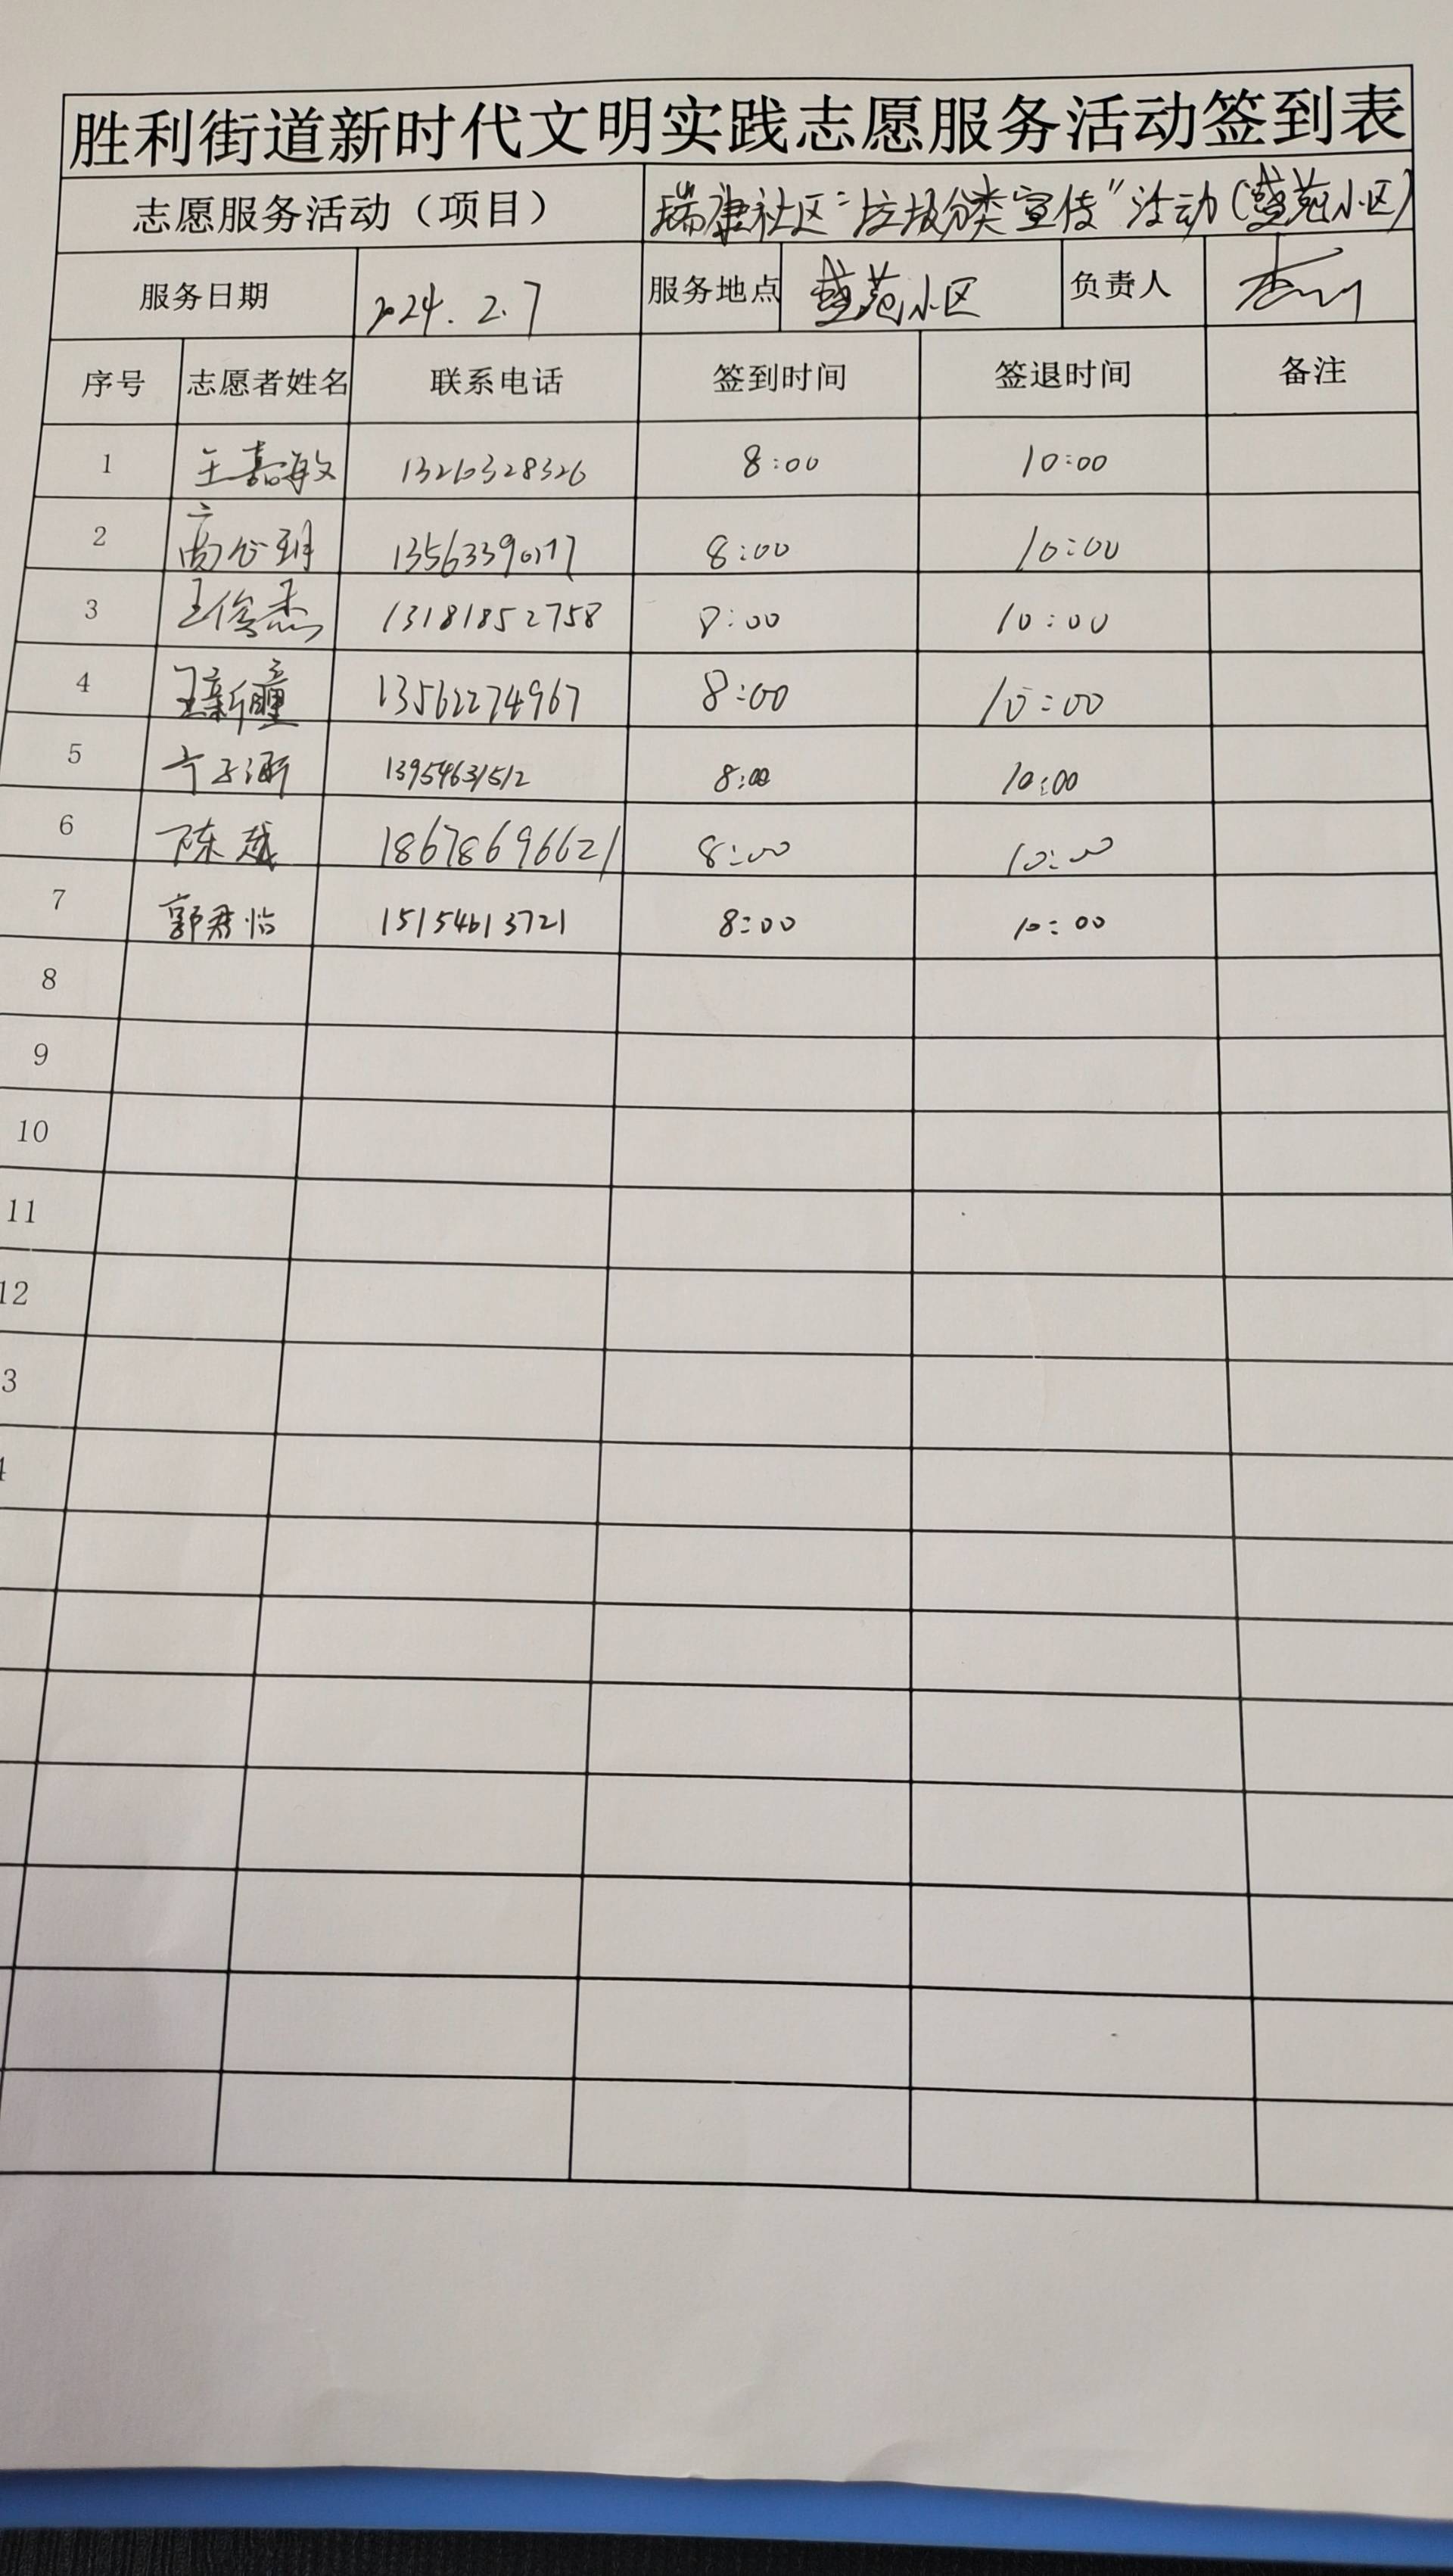 胜利街道新时代文明实践志愿服务活动签到表
志愿服务活动（项目） 瑞康社区“垃圾分类宣传”活动（盛苑小区）
服务日期 2024.2.7 服务地点 盛苑小区 负责人
序号 志愿者姓名 联系电话 签到时间 签退时间 备注
1 王嘉敏 1326328326 8:00 10:00
2 8:00 10:00
3 王俊杰 13181852758 8:00 10:00
4 王新瞳 13562274967 8:00 10:00
5 13954631512 8:00 10:00
6 陈越 18678696621 8:00 10:00
7 郭君怡 15154613721 8:00 10:00
8
9
10
11
12
3
4